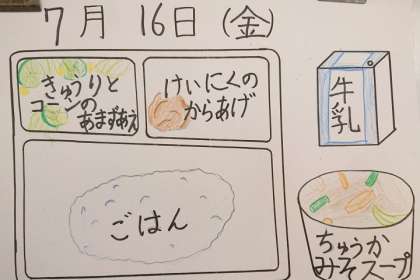 7月 16日 (金)
きゅうりと
コーンの
あまずあえ
けいにくの
からあげ
牛乳
ごはん
ちゅうか
みそスープ